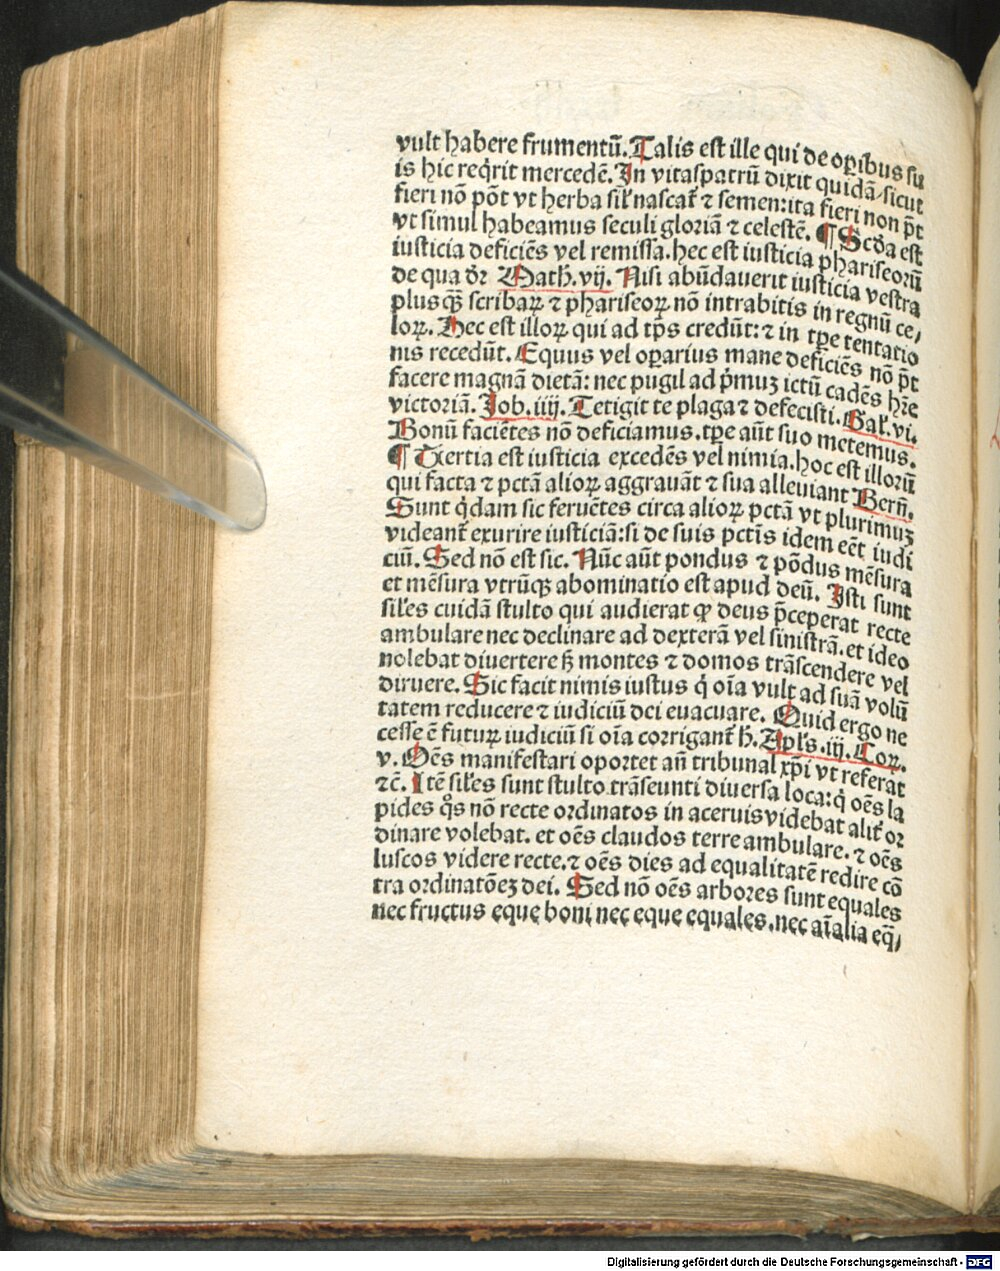 vult habere frumentū. Talis est ille qui de oꝑibus su
is hic reqͥrit mercedē. In vitaspatrū dixit quidā/sicut
fieri nō pōt vt herba sil' nascat̄ ⁊ semen: ita fieri non pt̄
vt simul habeamus seculi gloriā ⁊ celestē. ¶ Scd̄a est
iusticia deficiēs vel remissa. hec est iusticia phariseorū
de qua dr̄ Math. vij. Nisi abūdauerit iusticia vestra
plusqꝫ̄ scribaꝝ ⁊ phariseoꝝ nō intrabitis in regnū ce/
loꝝ. Hec est illoꝝ qui ad tp̄s credūt: ⁊ in tꝑe tentatio
nis recedūt. Equus vel oꝑarius mane deficiēs nō pt̄
facere magnā dietā: nec pugil ad pͥmuꝫ ictū cadēs hr̄e
victoriā. Job. iiij. Tetigit te plaga ⁊ defecisti. Gal'. vi.
Bonū faciētes nō deficiamus. tꝑe aūt suo metemus.
¶ Tertia est iusticia excedēs vel nimia. hoc est illorū
qui facta ⁊ pctā alioꝝ aggrauāt ⁊ sua alleuiant Bern̄.
Sunt qͥdam sic feruētes circa alioꝝ pctā vt plurimuꝫ
videant̄ exurire iusticiā: si de suis pctīs idem eēt iudi
ciū. Sed nō est sic. Nūc aūt pondus ⁊ pōdus mēsura
et mēsura vtrūqꝫ abominatio est apud deū. Isti sunt
sil'es cuidā stulto qui audierat ꝙ deus p̄ceperat recte
ambulare nec declinare ad dexterā vel sinistrā. et ideo
nolebat diuertere sꝫ montes ⁊ domos trāscendere vel
diruere. Sic facit nimis iustus qͥ oīa vult ad suā volū
tatem reducere ⁊ iudiciū dei euacuare. Quid ergo ne
cesse ē futuꝝ iudiciū si oīa corrigant̄ h̄. Apl's. iij. Coꝝ.
v. Oēs manifestari oportet an̄ tribunal xp̄i vt referat
⁊c̄. Itē sil'es sunt stulto trāseunti diuersa loca: qͥ oēs la
pides qͦs nō recte ordinatos in aceruis videbat alit̄ or
dinare volebat. et oēs claudos terre ambulare. ⁊ oēs
luscos videre recte. ⁊ oēs dies ad equalitatē redire cō
tra ordinatōeꝫ dei. Sed nō oēs arbores sunt equales
nec fructus eque boni nec eque equales. nec aīalia eq̄/
Digitalisierung gefördert durch die Deutsche Forschungsgemeinschaft - DFG